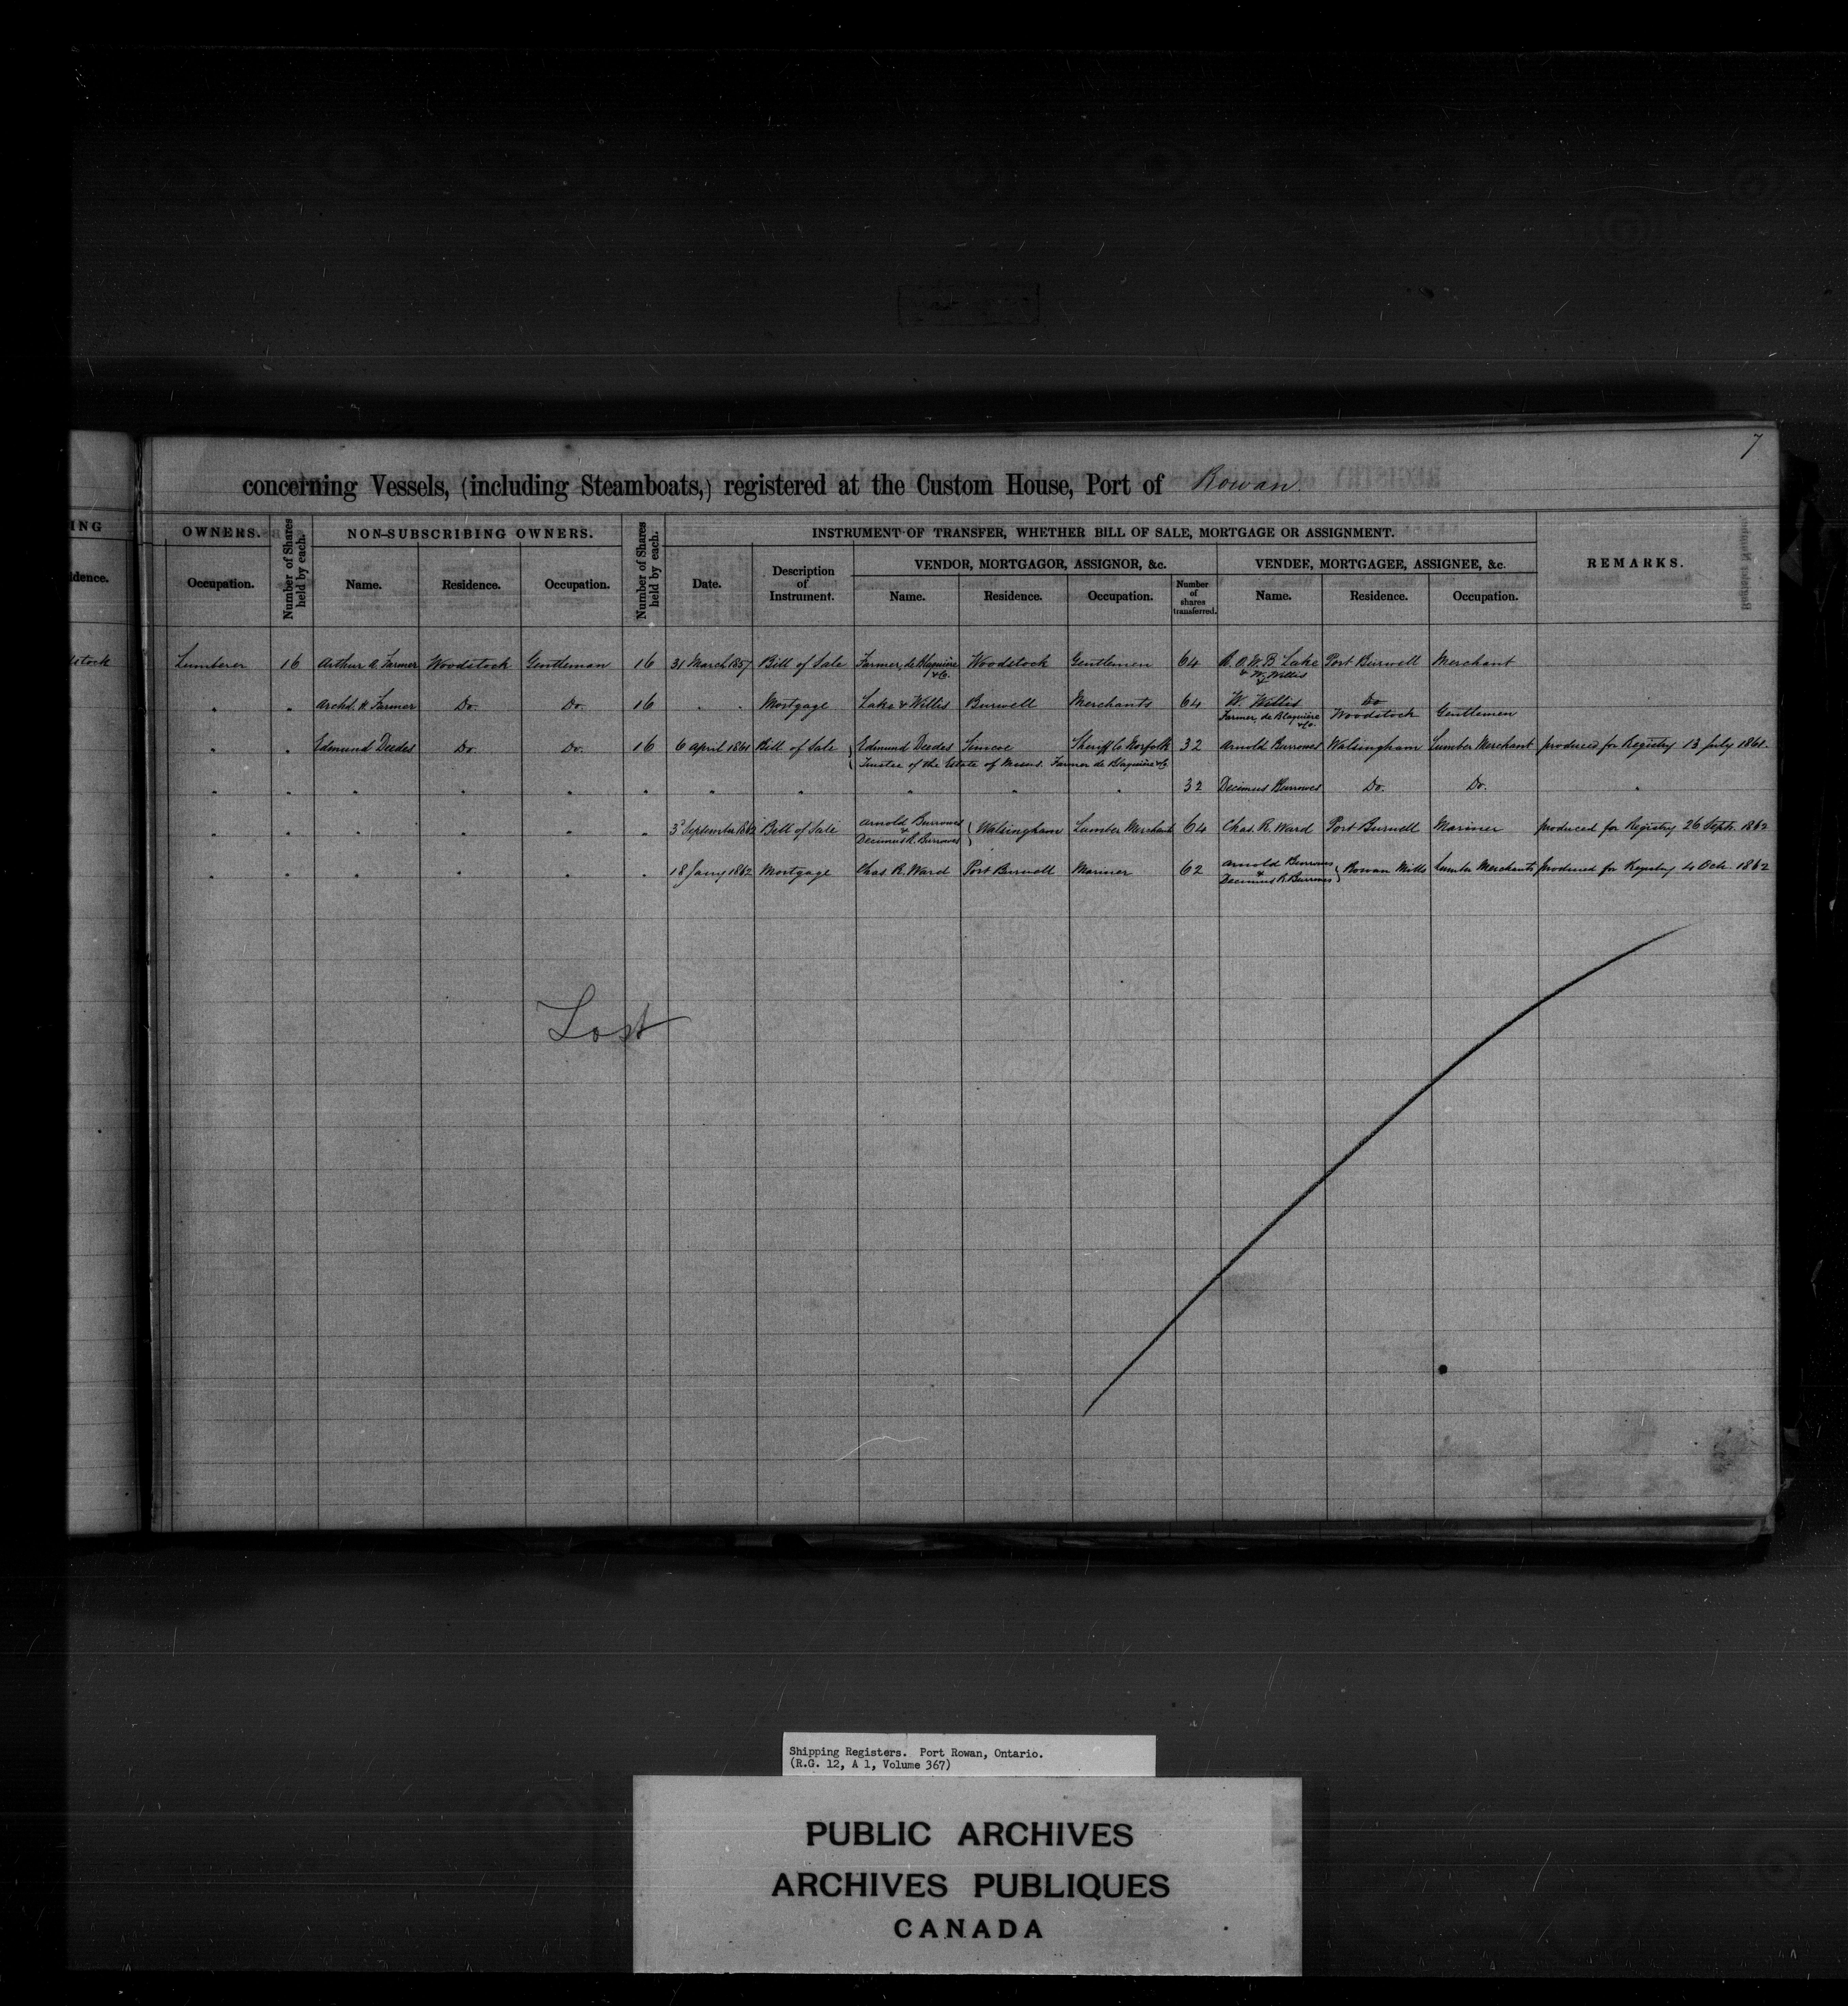 7
concerning Vessels, (including Steamboats,) registered at the Custom House, Port of Rowan.
ING
OWNERS.
Number of Shares held by each.
NON-SUBSCRIBING OWNERS.
Number of Shares held by each.
INSTRUMENT OF TRANSFER, WHETHER BILL OF SALE, MORTGAGE OR ASSIGNMENT.
REMARKS.
VENDOR, MORTGAGOR, ASSIGNOR, &c.
VENDEE, MORTGAGEE, ASSIGNEE, &c.
idence. Occupation. Name. Residence. Occupation. Date. Description of Instrument. Name. Residence. Occupation. Number of shares transferred. Name. Residence. Occupation.
dstock Lumberer 16 Arthur A. Farmer Woodstock Gentleman 16 31 March 1857 Bill of Sale Farmer, de Blaquière & Co. Woodstock Gentlemen 64 Lake & W. Willis Port Burwell Merchant
" " Archd. H. Farmer Do. Do. 16 " " Mortgage Lake & Willis Burwell Merchants 64 W. Willis Do
Farmer, de Blaquière & Co. Woodstock Gentlemen
" " Edmund Deedes Do. Do. 16 6 April 1861 Bill of Sale Edmund Deedes Simcoe Sheriff Co Norfolk 32 Arnold Burrowes Walsingham Lumber Merchant produced for Registry 13 July 1861.
Trustee of the Estate of Messrs. Farmer de Blaquière & Co
" " " " " " " " " " " 32 Decimus Burrowes Do. Do. "
" " " " " " 3d September 1862 Bill of Sale Arnold Burrowes & Decimus R. Burrowes Walsingham Lumber Merchant 64 Chas. R. Ward Port Burwell Mariner produced for Registry 26 Septr. 1862
" " " " " " 18 Jany 1862 Mortgage Chas R. Ward Port Burwell Mariner 62 Arnold Burrowes & Decimus R Burrowes Rowan Mills Lumber Merchants produced for Registry 4 Oct. 1862
Lost
Shipping Registers. Port Rowan, Ontario.
(R.G. 12, A 1, Volume 367)
PUBLIC ARCHIVES
ARCHIVES PUBLIQUES
CANADA